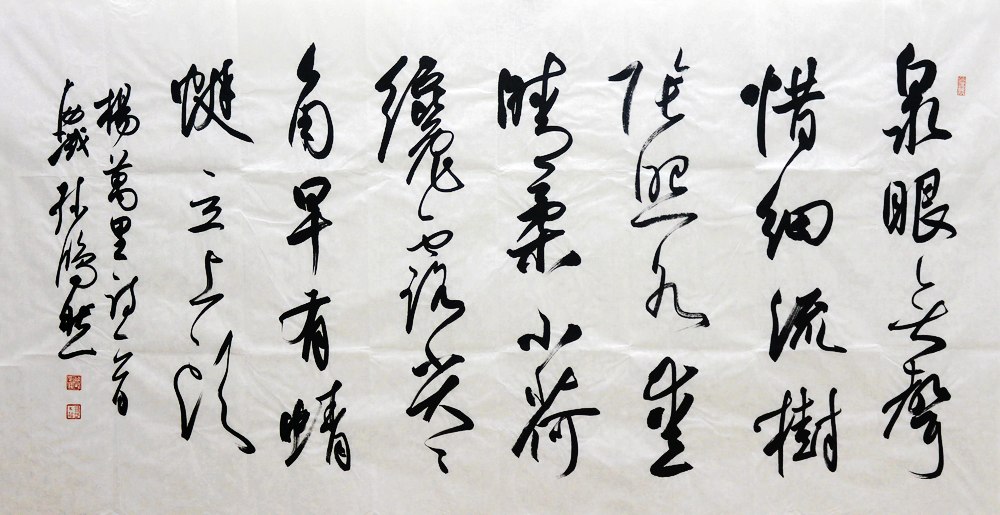 泉眼無聲
惜細流樹
陰照水愛
晴柔小荷
纔露尖々
角早有蜻
蜓立上頭
楊萬里詩一首